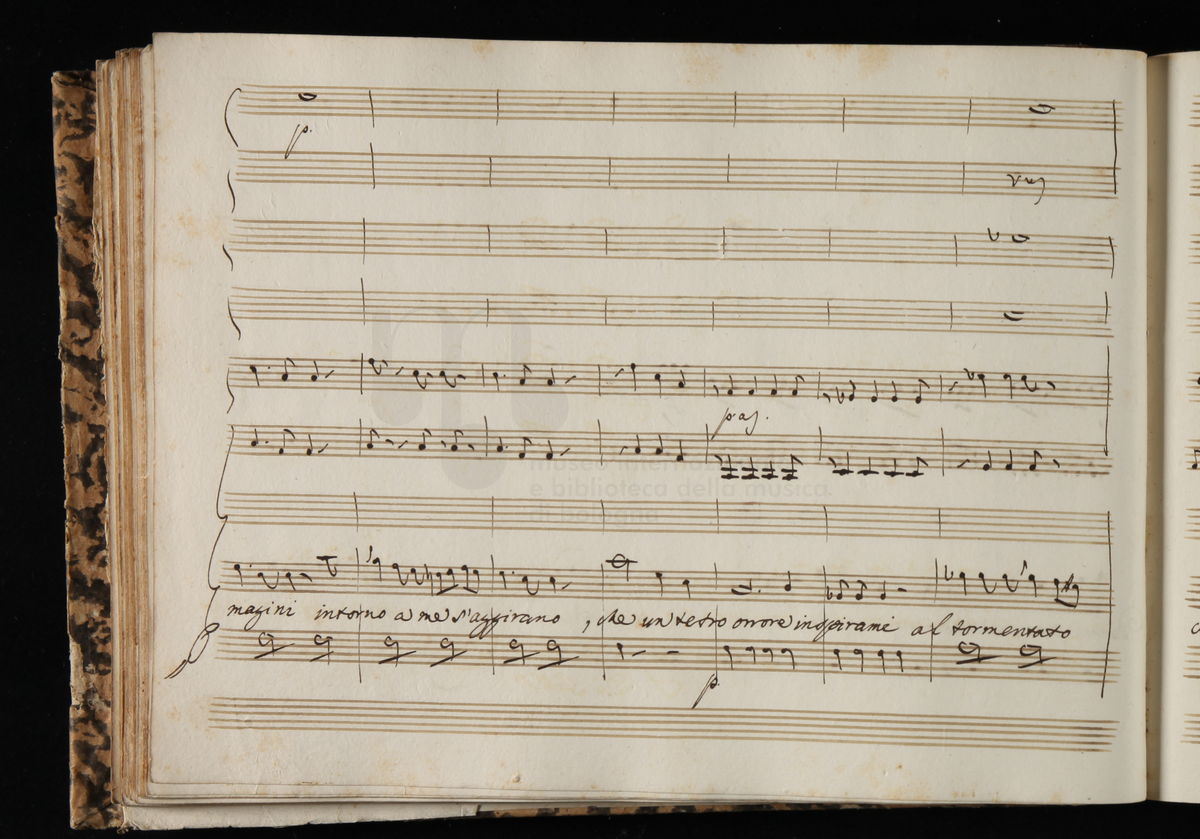 p.
p. as.
magini intorno a me s'aggirano , che un tetro orrore inspirami al tormentato
p.
museo internazionale
e biblioteca della musica
di bologna